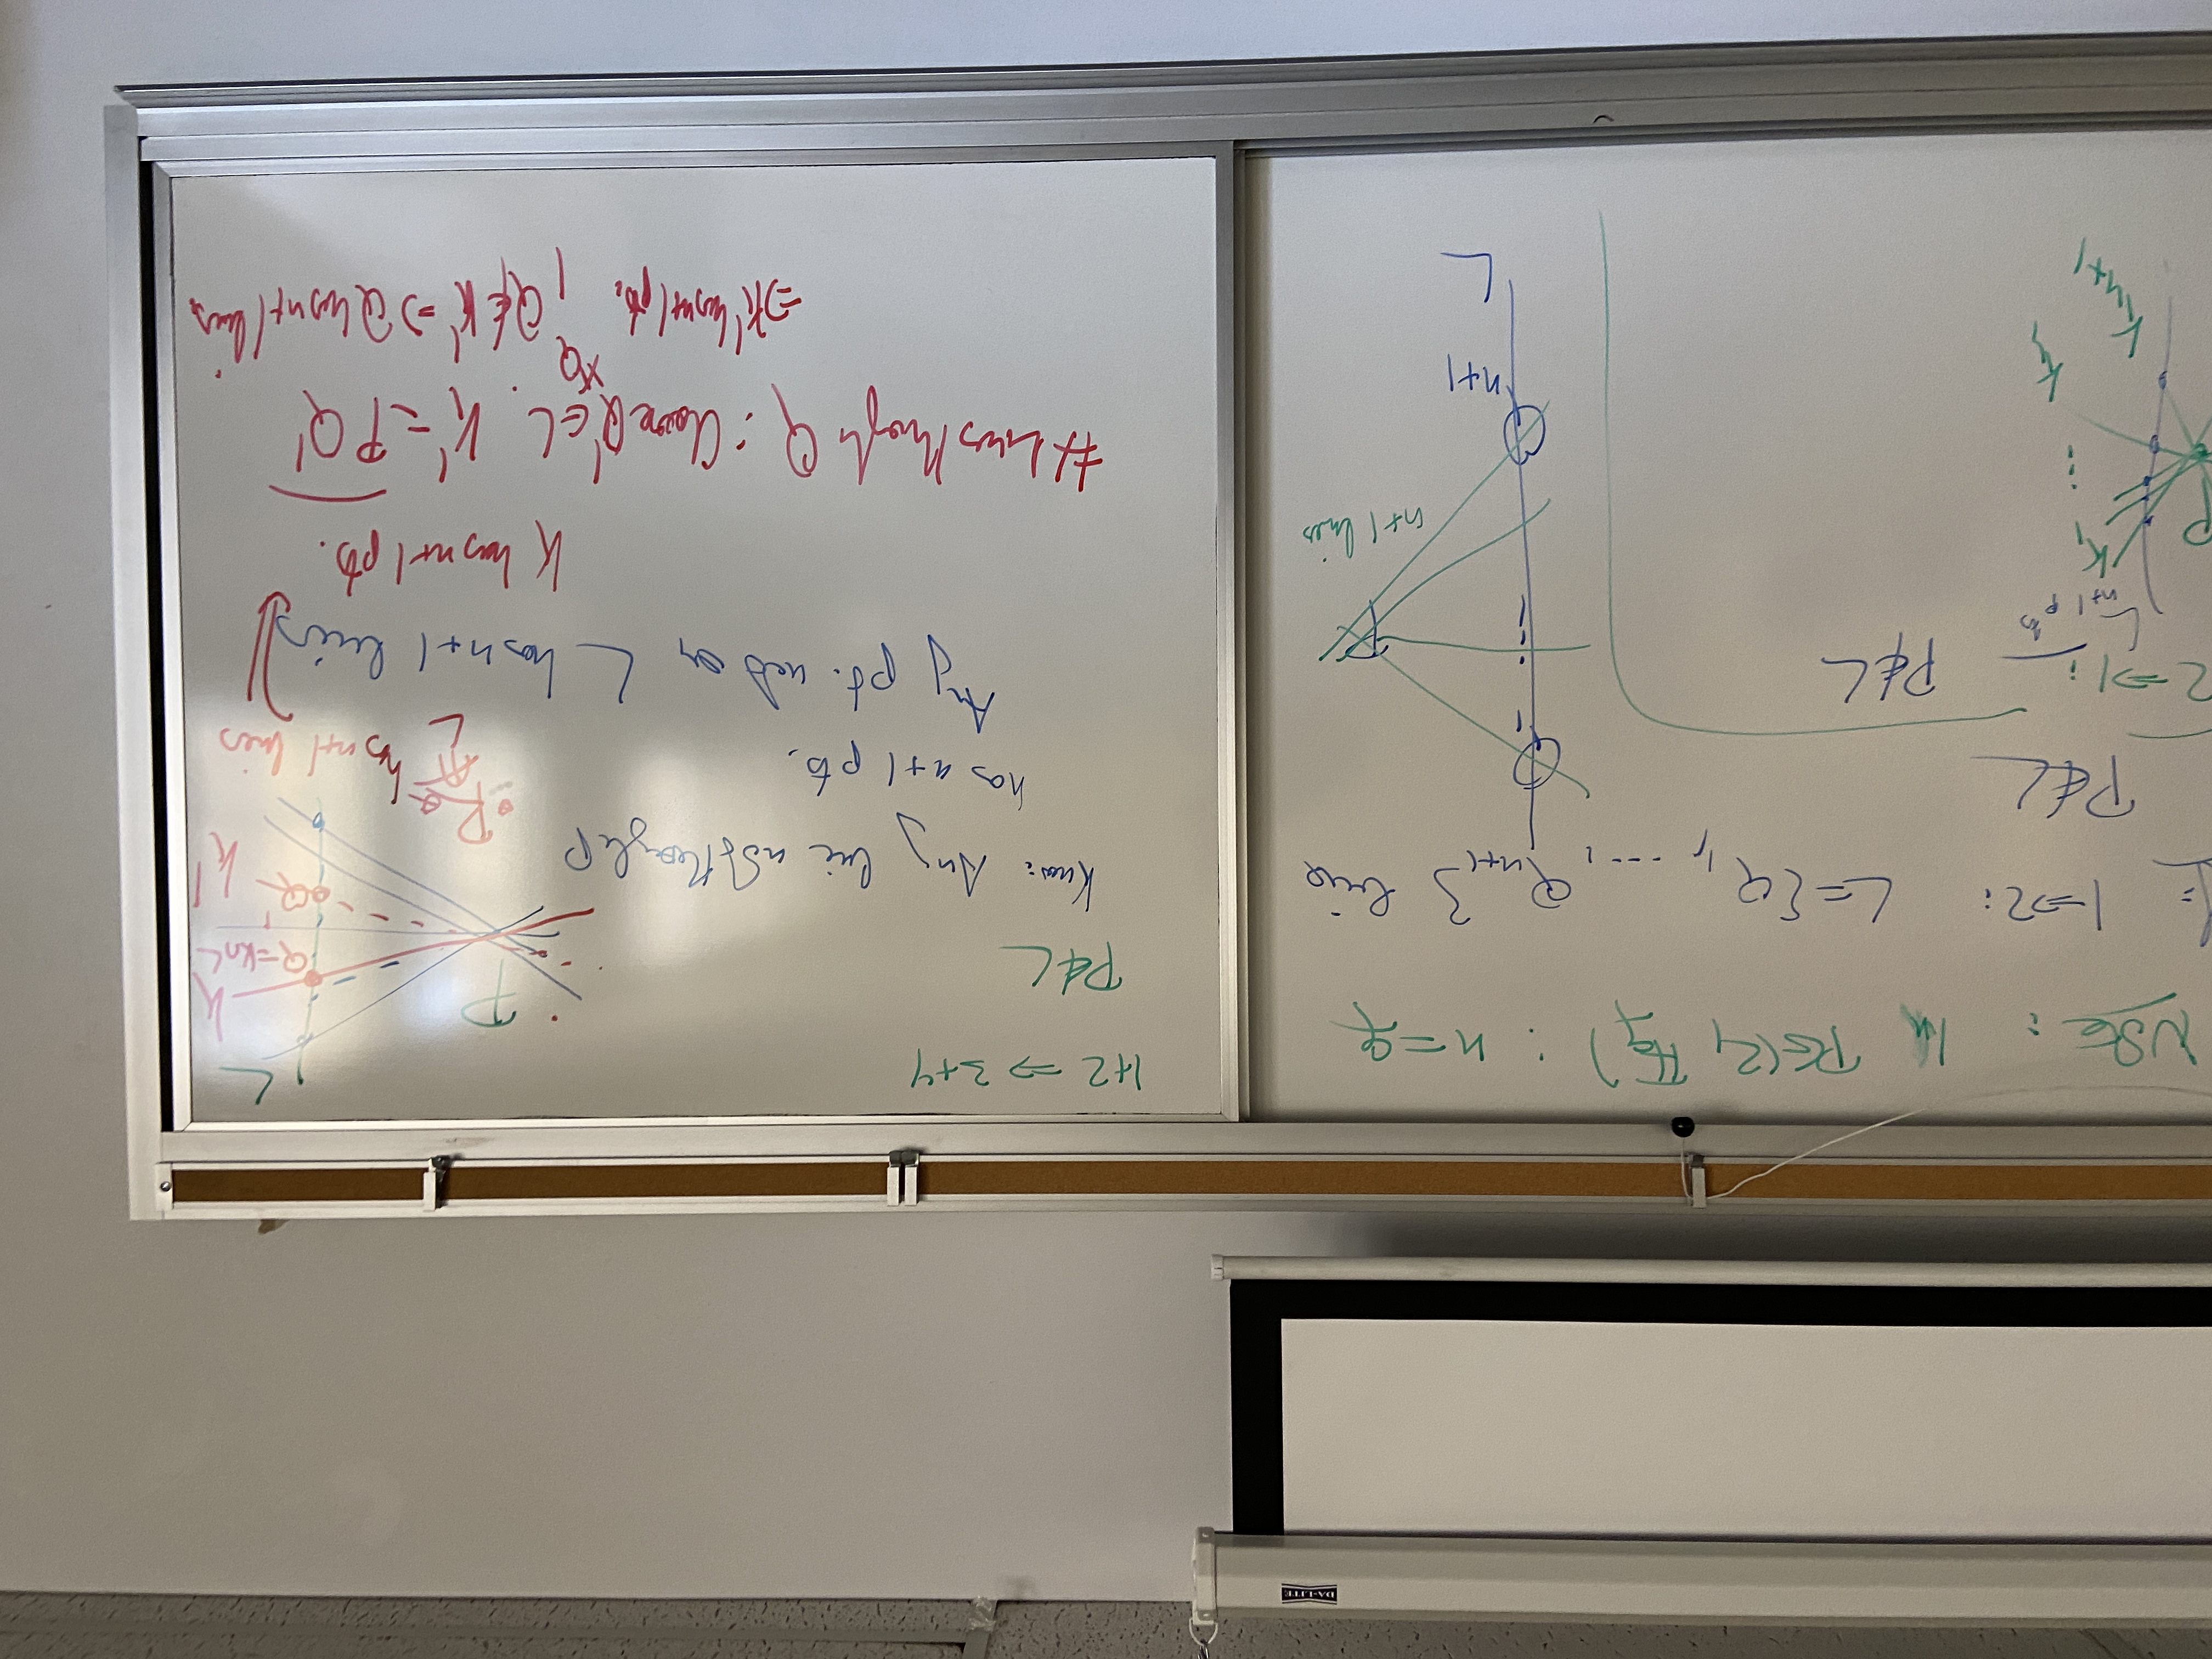 NSC: In PG(2, F_q) : n=q
1⇒2: L={Q_1, ...., Q_{n+1}} line
P∉L
2⇒1:
P∉L
L
n+1 pts
P
K_1
⋮
K_n
K_{n+1}
1
⋮
n+1
L
P
n+1 lines
1+2 ⇒ 3+4
P∉L
Know: Any line not through P
has n+1 pts.
Any pt. not on L has n+1 lines
L
P
K
Q=K∩L
Q'
K'
R
has n+1 lines
L
K has n+1 pts.
# Lines through Q : Choose Q'∈L. K'=PQ'
≠Q
⇒K' has n+1 pts. Q∉K' ⇒ Q has n+1 lines.
DA-LITE